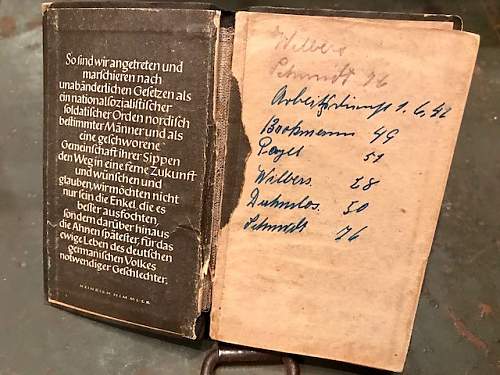 So sind wir angetreten und
marschieren nach
unabänderlichen Gesetzen als
ein nationalsozialistischer
soldatischer Orden nordisch
bestimmter Männer und als
eine geschworene
Gemeinschaft ihrer Sippen
den Weg in eine ferne Zukunft
und wünschen und
glauben, wir möchten nicht
nur sein die Enkel, die es
besser ausfochten,
sondern darüber hinaus
die Ahnen spätester, für das
ewige Leben des deutschen
germanischen Volkes
notwendiger Geschlechter.
HEINRICH HIMMLER
Wilbers
Schmidt 76
1. 6. 42
Bookmann 49
51
Wilbers. 28
50
Schmidt 76